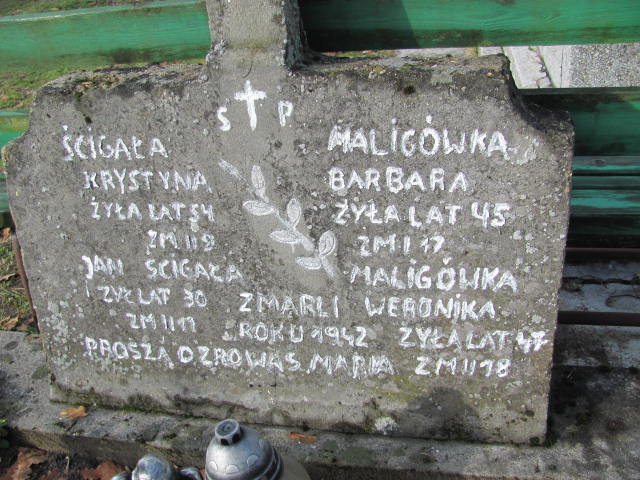 S P
ŚCIGAŁA
KRYSTYNA
ŻYŁA LAT 54
ZM II 9
JAN ŚCIGAŁA
ŻYŁ LAT 30
ZM II 11
MALIGÓWKA
BARBARA
ŻYŁA LAT 45
ZM I 17
MALIGÓWKA
WERONIKA
ŻYŁA LAT 47
ZM II 18
ZMARLI
ROKU 1942
PROSZĄ O ZROWAS MARIA